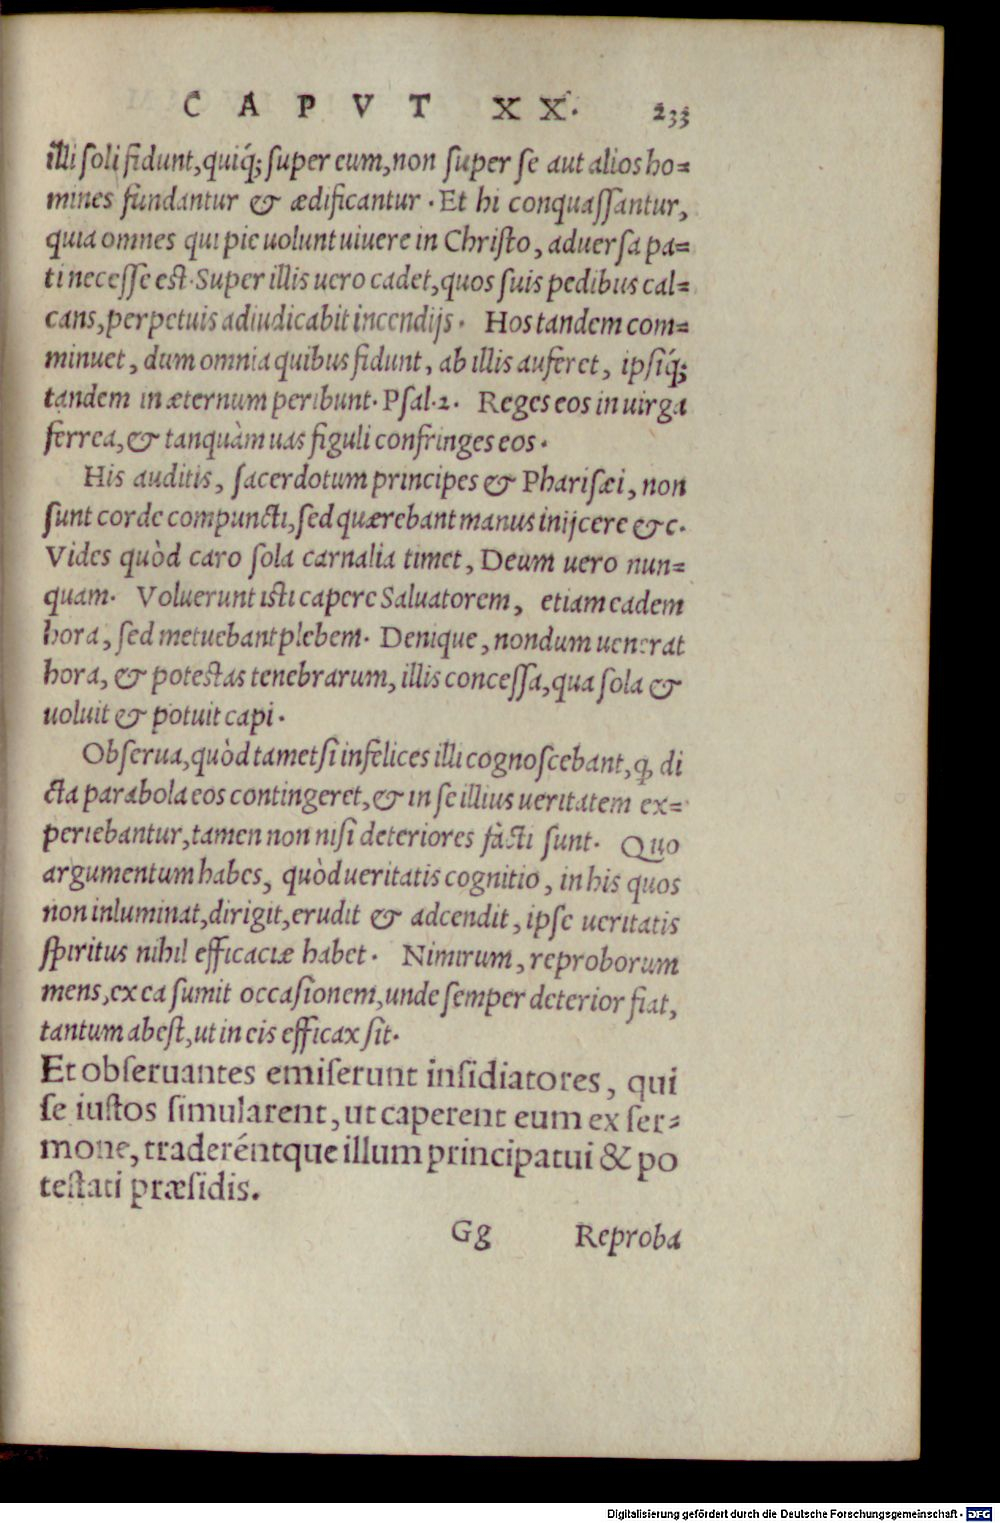 CAPVT XX. 233
illi soli fidunt, quiq́; super eum, non super se aut alios ho=
mines fundantur & ædificantur. Et hi conquassantur,
quia omnes qui pie uolunt uiuere in Christo, aduersa pa=
ti necesse est. Super illis uero cadet, quos suis pedibus cal=
cans, perpetuis adiudicabit incendijs. Hos tandem com=
minuet, dum omnia quibus fidunt, ab illis auferet, ipsiq́;
tandem in æternum peribunt. Psal. 2. Reges eos in uirga
ferrea, & tanquàm uas figuli confringes eos.
His auditis, sacerdotum principes & Pharisæi, non
sunt corde compuncti, sed quærebant manus inijcere &c.
Vides quòd caro sola carnalia timet, Deum uero nun=
quam. Voluerunt isti capere Saluatorem, etiam eadem
hora, sed metuebant plebem. Denique, nondum uenerat
hora, & potestas tenebrarum, illis concessa, qua sola &
uoluit & potuit capi.
Obserua, quòd tametsi infelices illi cognoscebant, ꝙ di
cta parabola eos contingeret, & in se illius ueritatem ex=
periebantur, tamen non nisi deteriores fàcti sunt. Quo
argumentum habes, quòd ueritatis cognitio, in his quos
non inluminat, dirigit, erudit & adcendit, ipse ueritatis
spiritus nihil efficaciæ habet. Nimirum, reproborum
mens, ex ea sumit occasionem, unde semper deterior fiat,
tantum abest, ut in eis efficax sit.
Et obseruantes emiserunt insidiatores, qui
se iustos simularent, ut caperent eum ex ser=
mone, traderéntque illum principatui & po
testati præsidis.
Gg Reproba
Digitalisierung gefördert durch die Deutsche Forschungsgemeinschaft - DFG